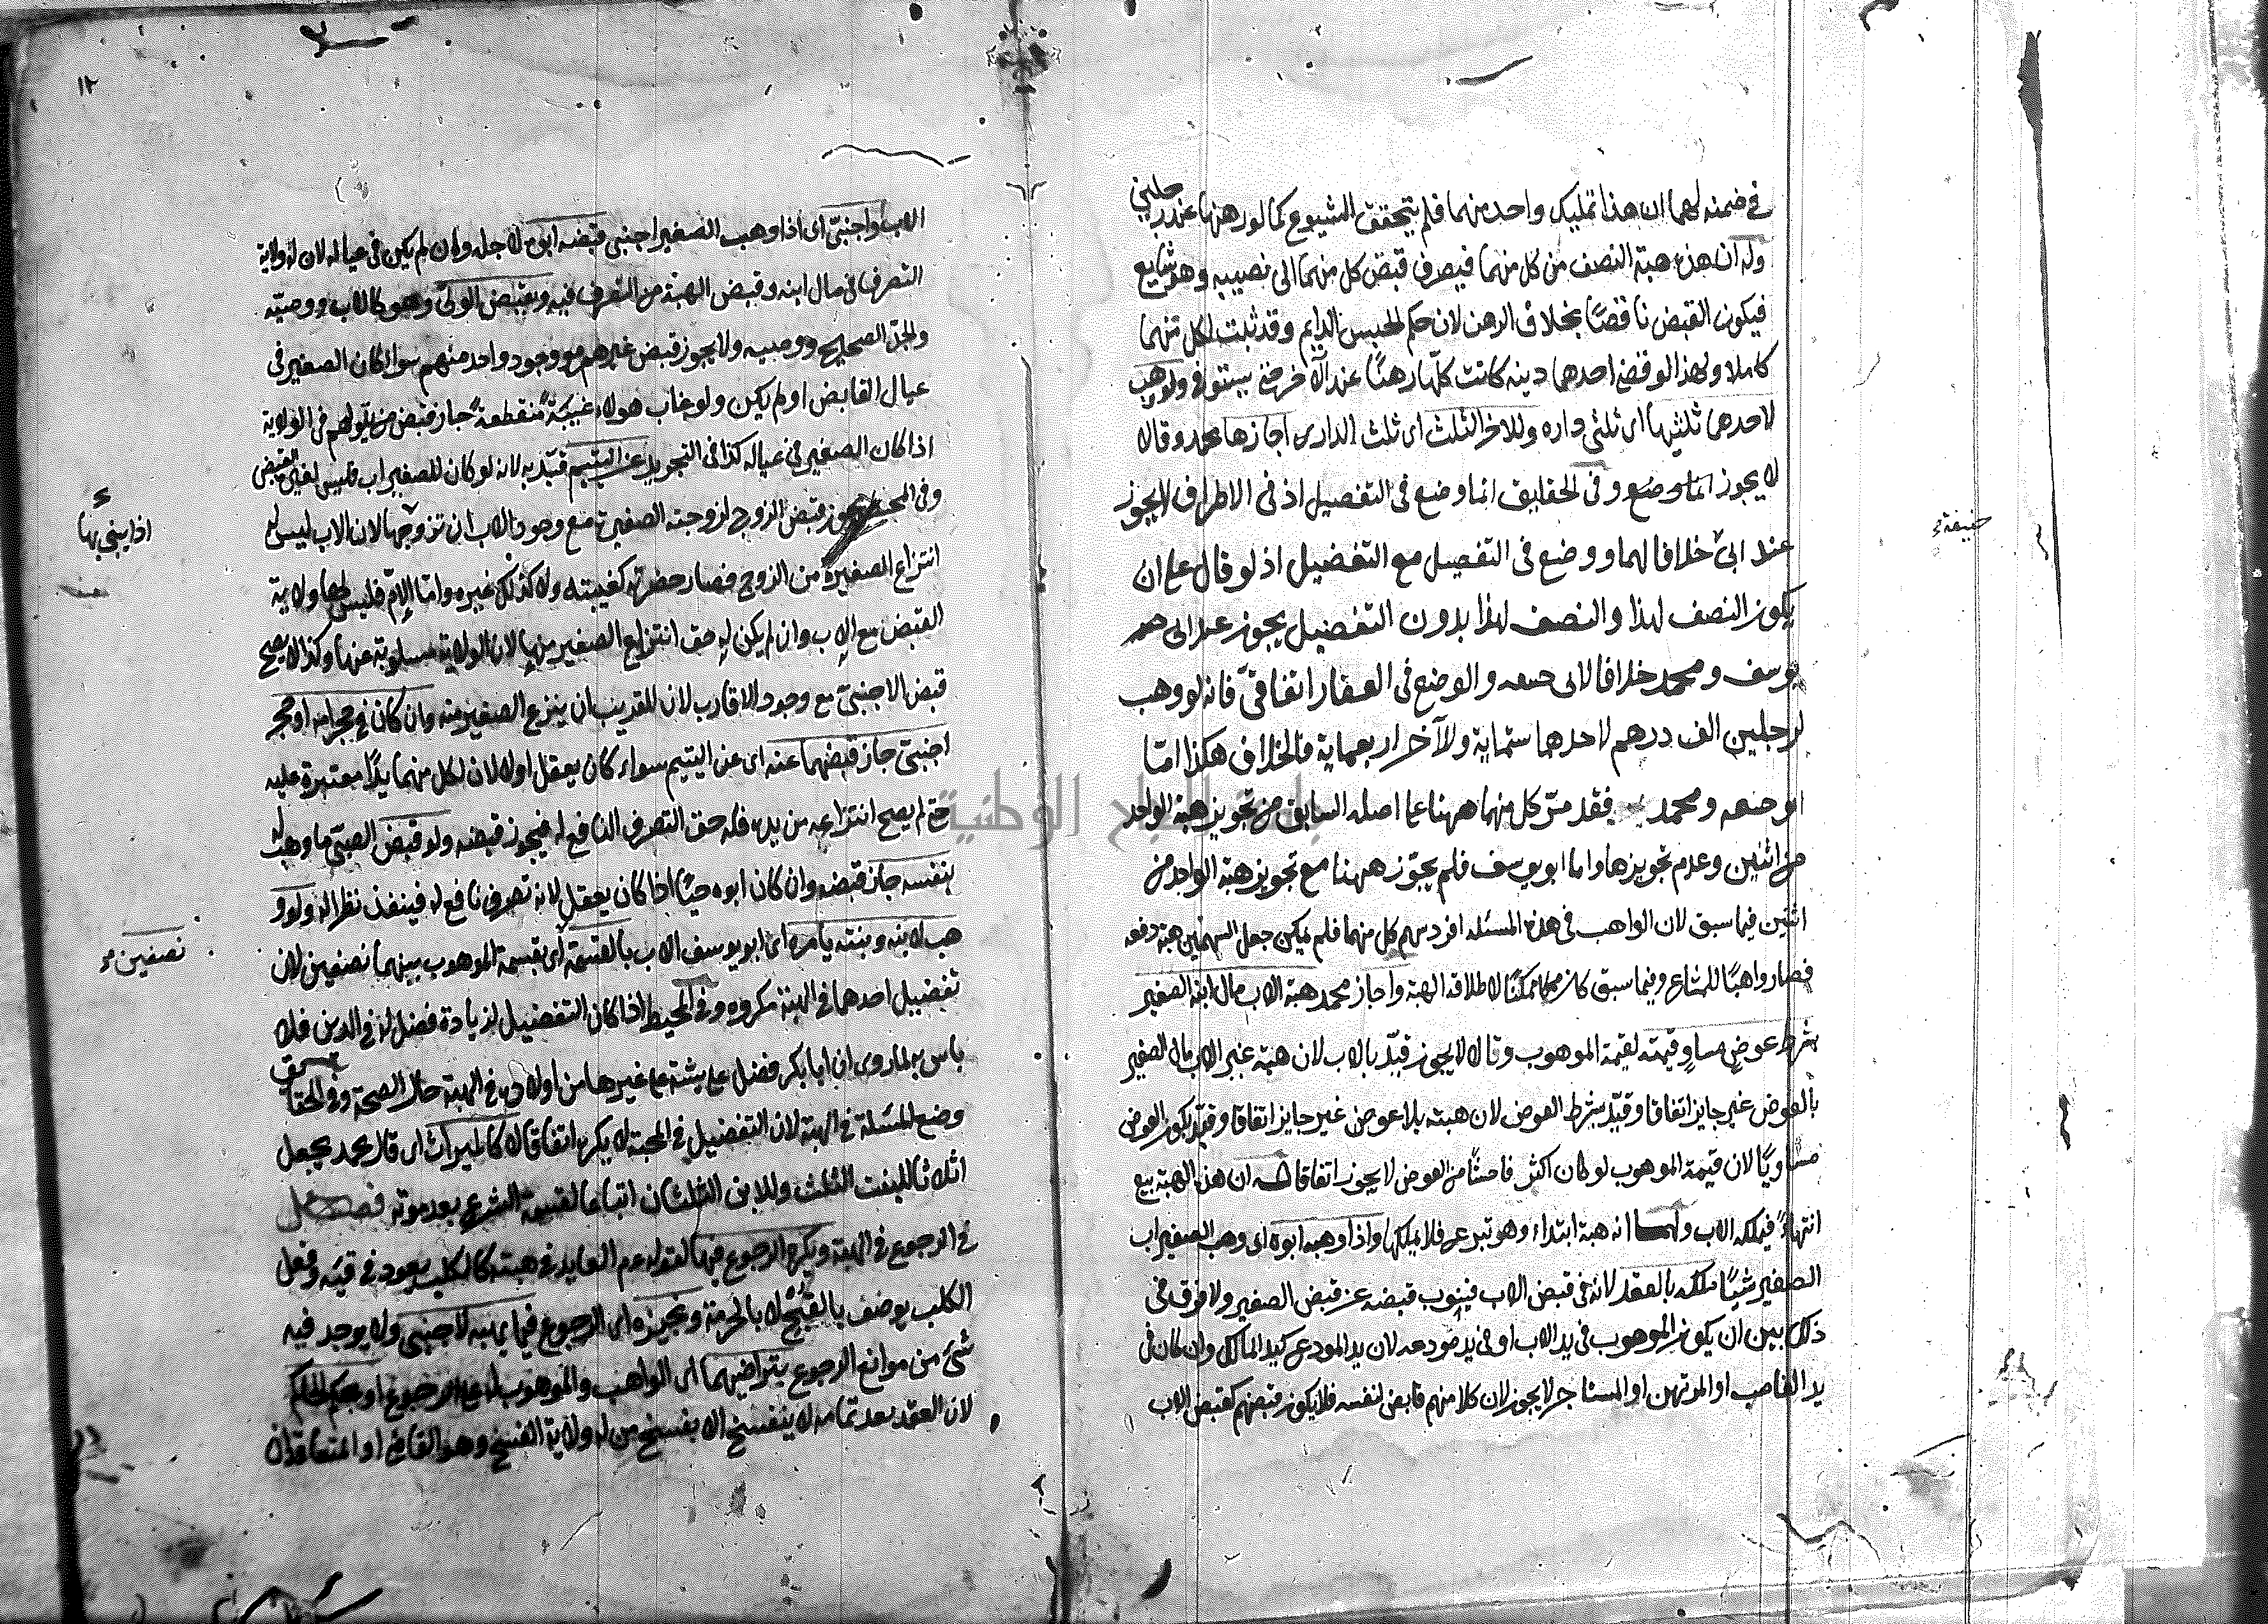 في ضمنه لهما ان هذا تمليك واحد منهما فلم يتحقق الشيوع كما لو رهنها عند رجلين
وله ان هذه هبة النصف من كل منهما فيصرف قبض كل منهما الى نصيبه وهو شايع
فيكون القبض ناقصًا بخلاف الرهن لان حكم الحبس الدايم وقد ثبت لكل منهما
كاملا ولهذا لو قضى احدهما دينه كانت كلها رهنًا عند الآخر حتى يستوفى ولو وهب
لاحدهما ثلثيها اى ثلثى داره وللاخر الثلث اى ثلث الدار اجازها محمد وقالا
لا يجوز انما وضع وفى الحقايق انما وضع فى التفصيل اذ فى الاطراف لا يجوز
عند ابى خلافا لهما ووضع فى التفصيل مع التفضيل اذ لو قال على ان
يكون النصف لهذا والنصف لهذا بدون التفضيل يجوز عند ابى
يوسف ومحمد خلافا لابى حنيفه والوضع فى العقار اتفاقىّ فانه لو وهب
لرجلين الف درهم لاحدهما ستماية وللآخر اربعماية فالخلاف هكذا امّا
ابو حنيفه ومحمد فقد مرّ كل منهما ههنا على اصله السابق من تجويز هبة الواحد
من اثنين وعدم تجويزها واما ابو يوسف فلم يجوّز ههنا مع تجويز هبة الواحد من
اثنين فيما سبق لان الواهب فى هذه المسئله افرد سهم كل منهما فلم يمكن جعل السهمين هبة دفعه
فصار واهبًا للمشاع وفيما سبق كان ممكنًا لاطلاقه الهبة واجاز محمد هبة الاب مال ابنه الصغير
بشرط عوض مساوٍ قيمته لقيمة الموهوب وقالا لا يجوز قيّد بالاب لان هبة غير الاب مال الصغير
بالعوض غير جايز اتفاقا وقيّد بشرط العوض لان هبته بلا عوض غير جايز اتفاقا وقيّد بكون العوض
مساويًا لان قيمة الموهوب لو كان اكثر فاحشًا من العوض لا يجوز اتفاقا له ان هذه الهبة بيع
انتهاءً فيملكه الاب ولهما انه هبة ابتداء وهو تبرع فلا يملكها واذا وهبه ابوه اى وهب الصغير اب
الصغير شيئًا ملكه بالعقد لانه فى قبض الاب فينوب قبضه عن قبض الصغير ولا فرق فى
ذلك بين ان يكون الموهوب فى يد الاب او فى يد مودعه لان يد المودع كيد المالك وان كان فى
يد الغاصب او المرتهن او المستاجر لا يجوز لان كلا منهم قابض لنفسه فلا يكون قبضهم كقبض الاب
حنيفة
١٢
الاب واجنبىّ اى اذا وهب الصغير اجنبى قبضه ابوه لاجله وان لم يكن فى عياله لان له ولاية
التصرف فى مال ابنه وقبض الهبة من التصرف فيه وبقبض الولىّ وهو كالاب ووصيّه
والجدّ الصحيح ووصيه ولا يجوز قبض غيرهم مع وجود واحد منهم سوا كان الصغير فى
عيال القابض او لم يكن ولو غاب هولاء غيبةً منقطعةً جاز قبض من يتولهم فى الولاية
اذا كان الصغير فى عياله كذا فى التجريد عن اليتيم قيّد به لانه لو كان للصغير اب فليس لغيره القبض
وفى يجوز قبض الزوج لزوجته الصغيرة مع وجود الاب ان تزوجها لان الاب ليس له
انتزاع الصغيرة من الزوج فصار حضرته كغيبته ولا كذلك غيره وامّا الامّ فليس لها ولاية
القبض مع الاب وان لم يكن له حق انتزاع الصغير منها لان الولاية مسلوبة عنها وكذا لا يصح
قبض الاجنبىّ مع وجود الاقارب لان للقريب ان ينزع الصغير منه وان كان فى حجر امه او حجر
اجنبىّ جاز قبضهما عنه اى عن اليتيم سواء كان يعقل او لا لان لكل منهما يدًا معتبرة عليه
حتى لم يصح انتزاعه من يده فله حق التصرف النافع له فيجوز قبضه ولو قبض الصبىّ ما وهب له
بنفسه جاز قبضه وان كان ابوه حيًا اذا كان يعقل لانه تصرف نافع له فينفذ نظرا له ولو و
هب لابنه وبنته يامره اى ابو يوسف الاب بالقسمة اى بقسمة الموهوب بينهما نصفين لان
تفضيل احدهما فى الهبة مكروه وفى المحيط اذا كان التفضيل لزيادة فضل له فى الدين فلا
باس به لما روى ان ابا بكر فضل عايشة على غيرها من اولاده فى الهبة حال الصحة وفى الحقايق
وضع المسئلة فى الهبة لان التفضيل فى المحبة لا يكره اتفاقا لا كالميراث اى قال محمد يجعل
اثلاثا للبنت الثلث وللابن الثلثان اتباعا لقسمة الشرع بعد موته فصل
فى الرجوع فى الهبة ويكره الرجوع فيها لقوله عم العايد فى هبته كالكلب يعود فى قيئه وفعل
الكلب يوصف بالقبح لا بالحرمة ونجيزه اى الرجوع فيما يهبه لاجنبى ولا يوجد فيه
شئ من موانع الرجوع بتراضيهما اى الواهب والموهوب له على الرجوع او بحكم الحاكم
لان العقد بعد تمامه لا ينفسخ الا بفسخ من له ولاية الفسخ وهو القاضى او المتعاقدان
اذا يبنى بها
نصفين